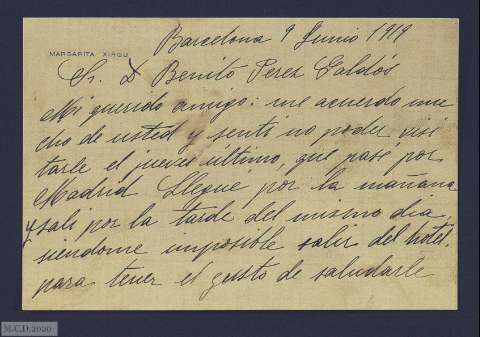 Barcelona 9 Junio 1919
MARGARITA XIRGU
Sr. D Benito Perez Galdós
Mi querido amigo: me acuerdo mu
cho de usted y sentí no poder visi
tarle el jueves último, que pasé por
Madrid Llegué por la mañana
y salí por la tarde del mismo dia,
siendome imposible salir del hotel.
para tener el gusto de saludarle
M.C.D.2020